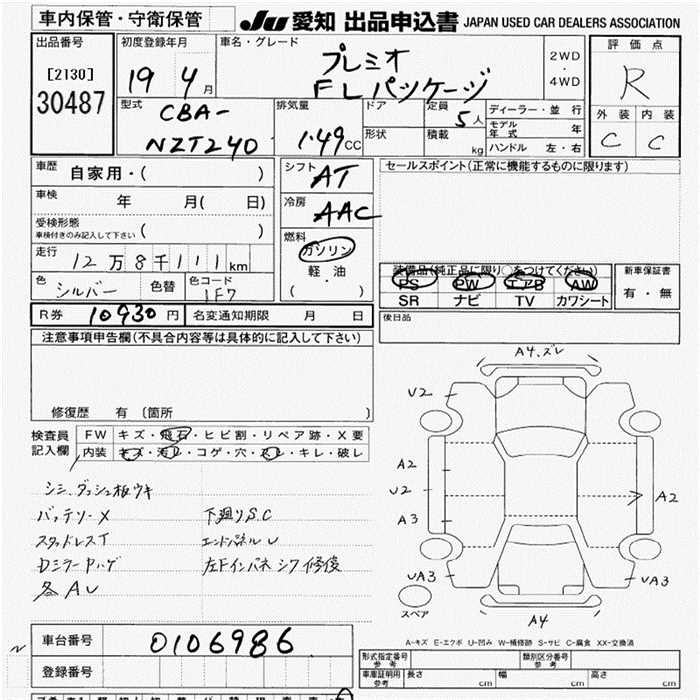 車内保管・守衛保管
JU 愛知 出品申込書 JAPAN USED CAR DEALERS ASSOCIATION
出品番号
[2130]
30487
初度登録年月
19 4月
車名・グレード
プレミオ
FLパッケージ
2WD
・
4WD
評価点
R
外装 内装
C C
型式
CBA-
NZT240
排気量
1.49CC
ドア
形状
定員
5人
積載
kg
ディーラー・並行
モデル年式 年
ハンドル 左・右
車歴
自家用・( )
車検
年 月( 日)
受検形態
車検付きのみ記入して下さい ( )
走行
12万8千111km
色
シルバー
色替
色コード
1F7
シフト
AT
冷房
AAC
燃料
ガソリン
軽・油
・
( )
セールスポイント(正常に機能するものに限ります)
装備品(純正品に限り○をつけてください)
PS PW エアB AW
SR ナビ TV カワシート
新車保証書
有・無
R券 10930円
名変通知期限 月 日
後日品
注意事項申告欄(不具合内容等は具体的に記入して下さい)
修復歴 有 〔箇所 〕
検査員
記入欄
FW キズ・飛石・ヒビ割・リペア跡・X要
内装 キズ・汚レ・コゲ・穴・スレ・キレ・破レ
シミ、ダッシュ板ウキ
バッテリーX
下廻りS.C
スタッドレスT
エンドパネルU
Dミラーハゲ
左Fインパネシワ修復
各AU
A4.ズレ
V2
A2
U2
A3
A2
UA3
UA3
A4
スペア
A-キズ E-エクボ U-凹み W-補修跡 S-サビ C-腐食 XX-交換済
車台番号
0106986
登録番号
N
形式指定番号
参考
類別区分番号
参考
車庫証明用
参考
長さ cm
幅 cm
高さ cm